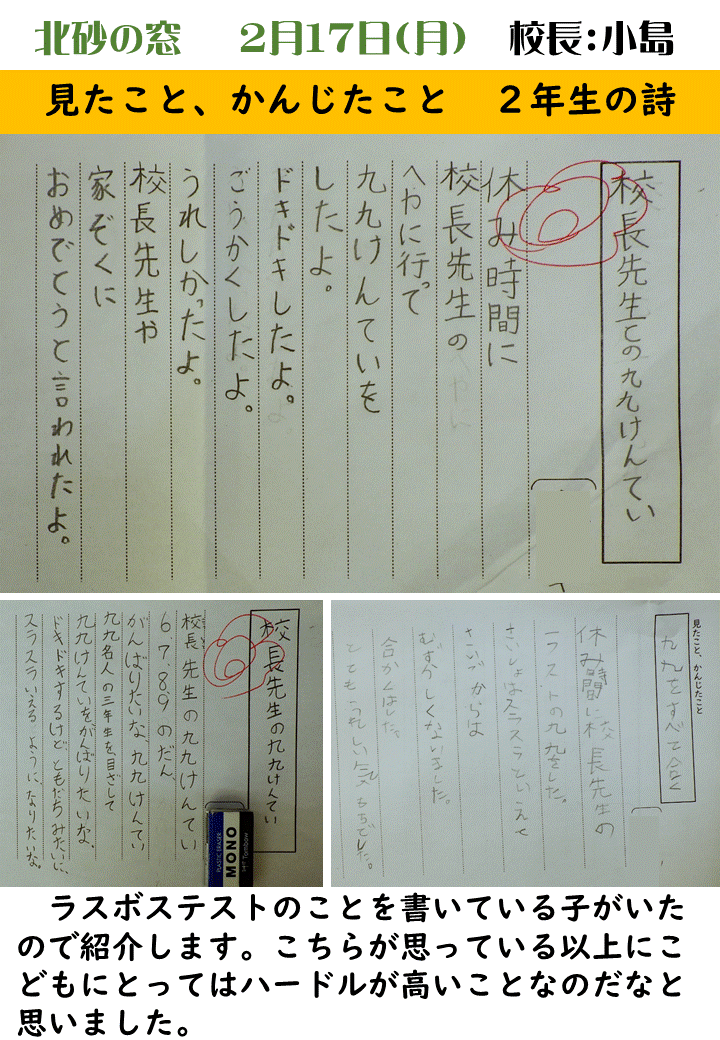 北砂の窓　2月17日(月)　校長:小島
見たこと、かんじたこと　２年生の詩
校長先生との九九けんてい
休み時間に
校長先生の
へやに行って
九九けんていを
したよ。
ドキドキしたよ。
ごうかくしたよ。
うれしかったよ。
校長先生や
家ぞくに
おめでとうと言われたよ。
校長先生の九九けんてい
校長先生の九九けんてい
6.7.8.9のだん。
がんばりたいな、九九けんてい
九九名人の三年生を目ざして
九九けんていをがんばりたいな、
ドキドキするけど ともだちみたいに、
スラスラいえる ように なりたいな。
PLASTIC ERASER
MONO
Tombow
見たこと、かんじたこと
九九をすべて合かく
休み時間に校長先生の
ラストの九九をした。
さいしょはスラスラといえて
からは
むずかしく
合かくはした。
とてもうれしい気もちでした。
　ラスボステストのことを書いている子がいた
ので紹介します。こちらが思っている以上にこ
どもにとってはハードルが高いことなのだなと
思いました。